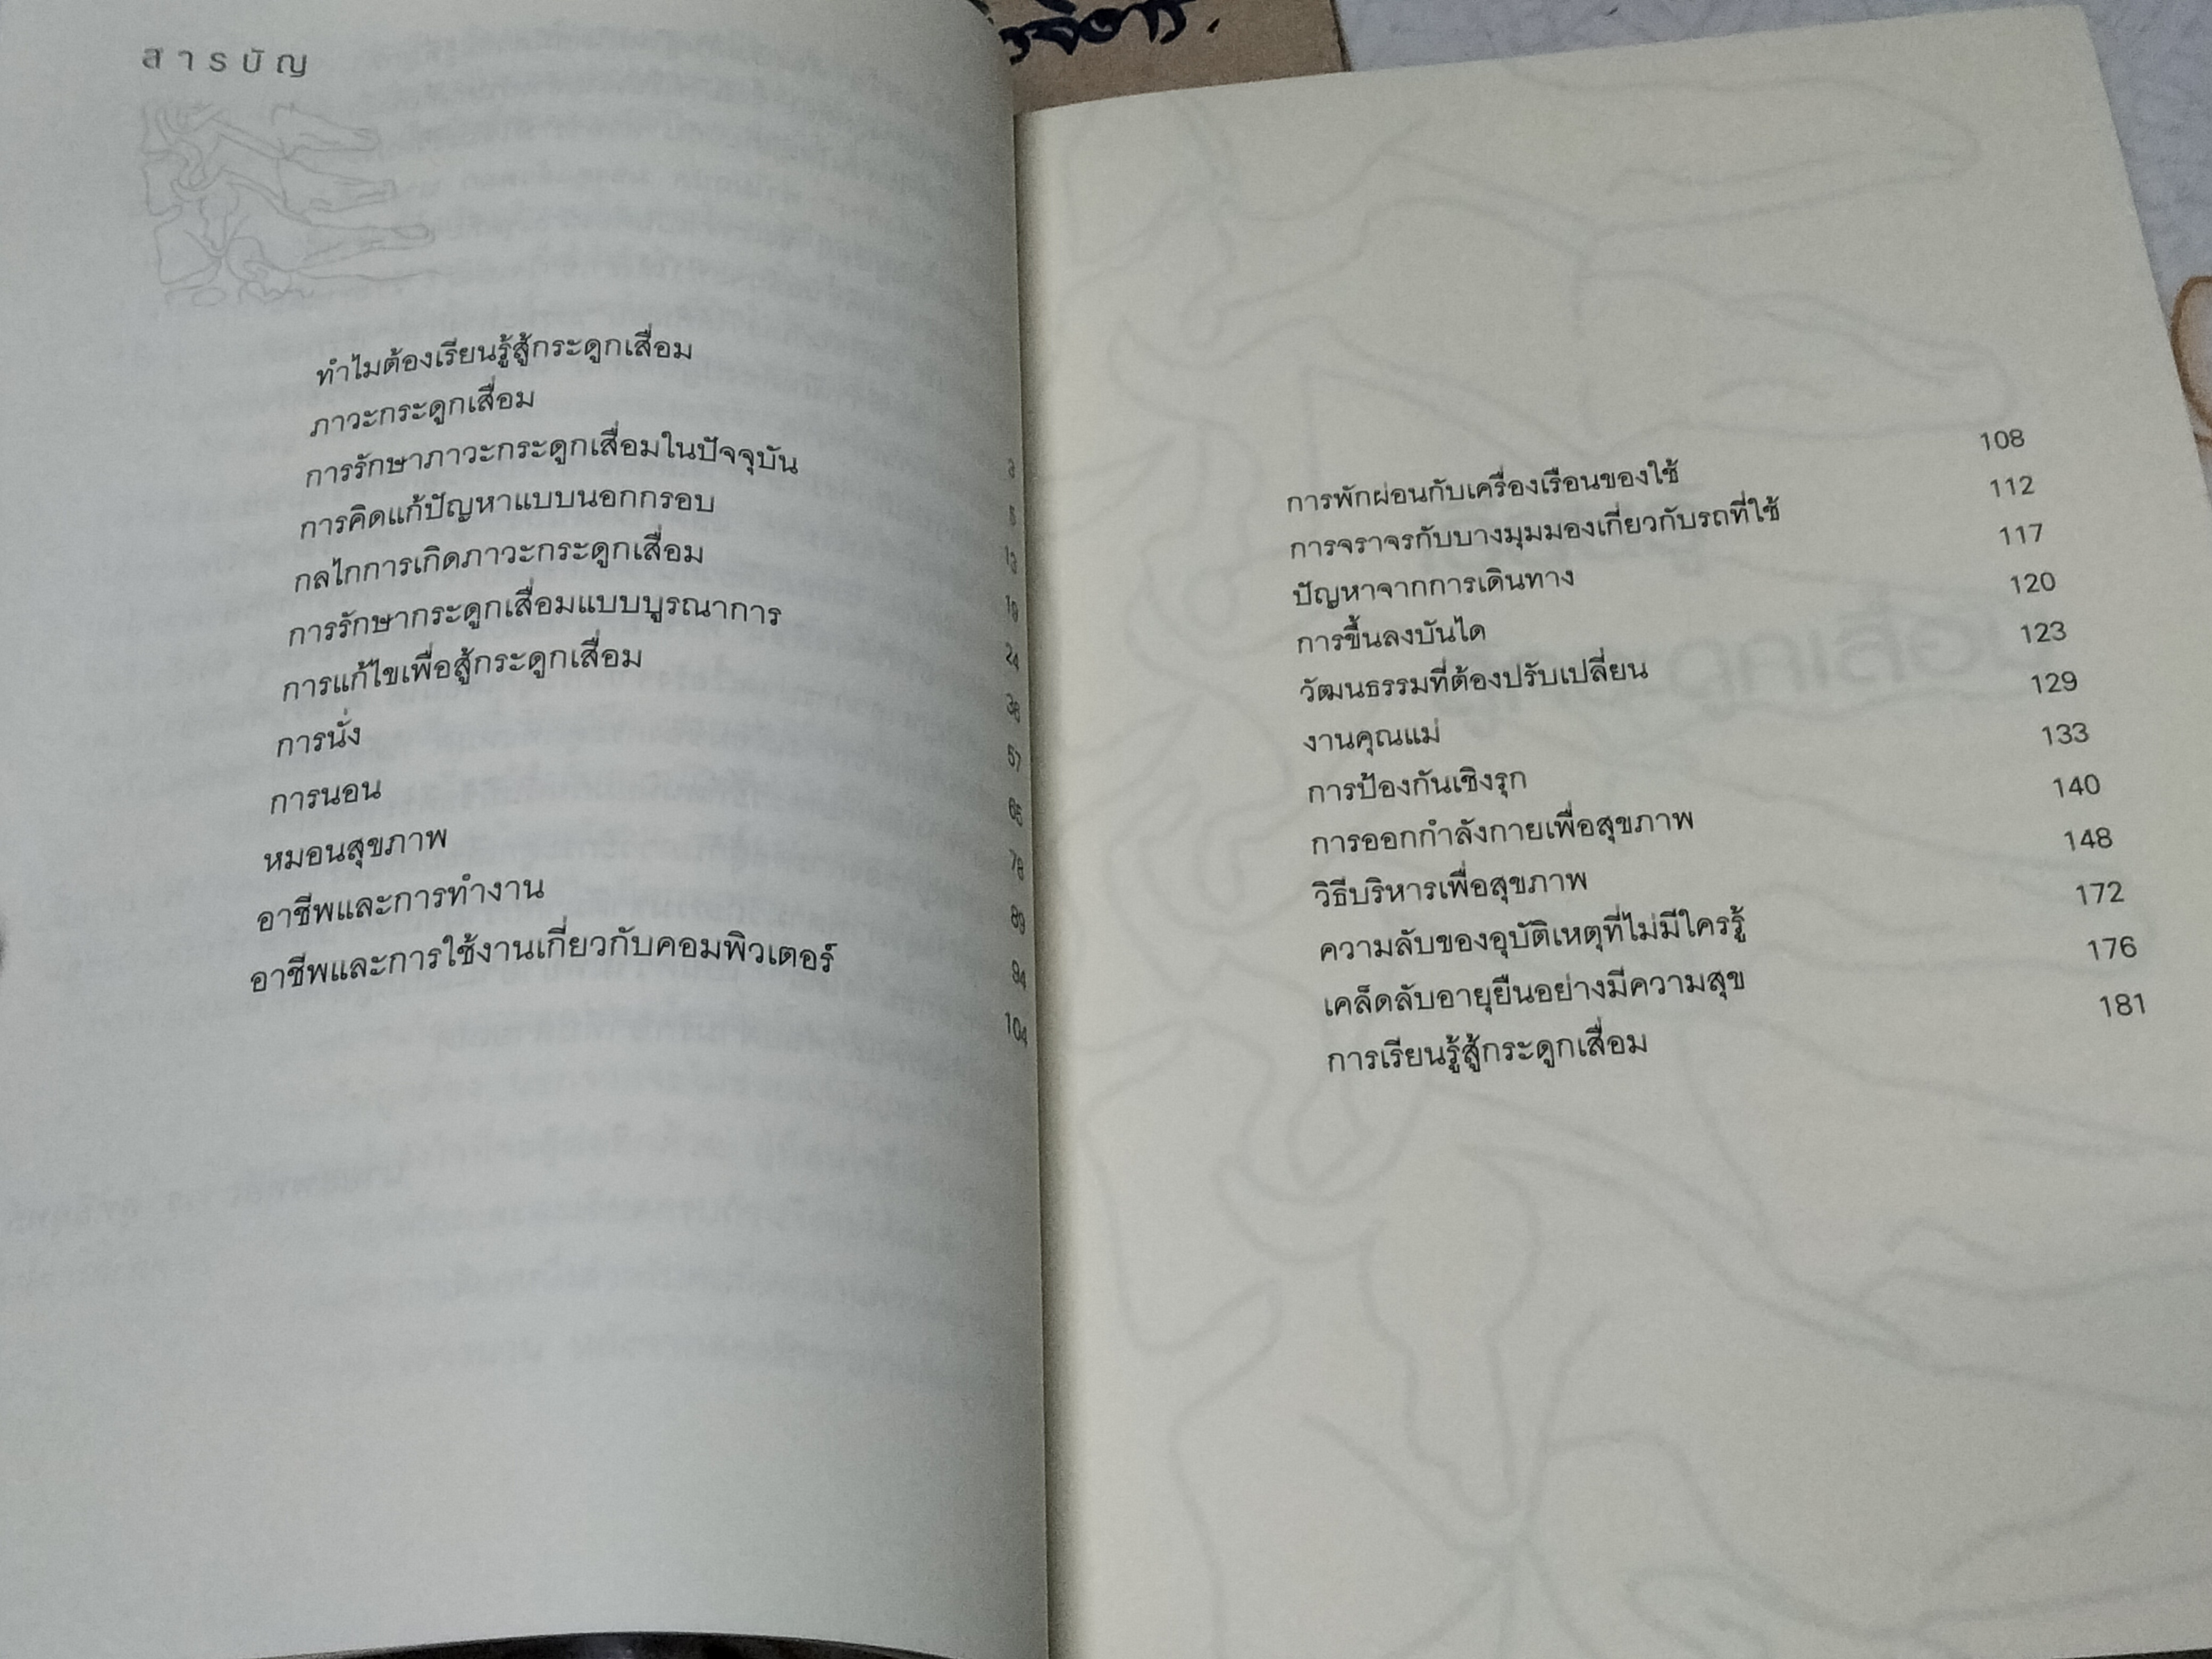 สารบัญ
ทำไมต้องเรียนรู้สู้กระดูกเสื่อม 3
ภาวะกระดูกเสื่อม 5
การรักษาภาวะกระดูกเสื่อมในปัจจุบัน 13
การคิดแก้ปัญหาแบบนอกกรอบ 19
กลไกการเกิดภาวะกระดูกเสื่อม 24
การรักษากระดูกเสื่อมแบบบูรณาการ
การแก้ไขเพื่อสู้กระดูกเสื่อม 57
การนั่ง
การนอน 78
หมอนสุขภาพ 89
อาชีพและการทำงาน 94
อาชีพและการใช้งานเกี่ยวกับคอมพิวเตอร์ 104
การพักผ่อนกับเครื่องเรือนของใช้ 108
การจราจรกับบางมุมมองเกี่ยวกับรถที่ใช้ 112
ปัญหาจากการเดินทาง 117
การขึ้นลงบันได 120
วัฒนธรรมที่ต้องปรับเปลี่ยน 123
งานคุณแม่ 129
การป้องกันเชิงรุก 133
การออกกำลังกายเพื่อสุขภาพ 140
วิธีบริหารเพื่อสุขภาพ 148
ความลับของอุบัติเหตุที่ไม่มีใครรู้ 172
เคล็ดลับอายุยืนอย่างมีความสุข 176
การเรียนรู้สู้กระดูกเสื่อม 181